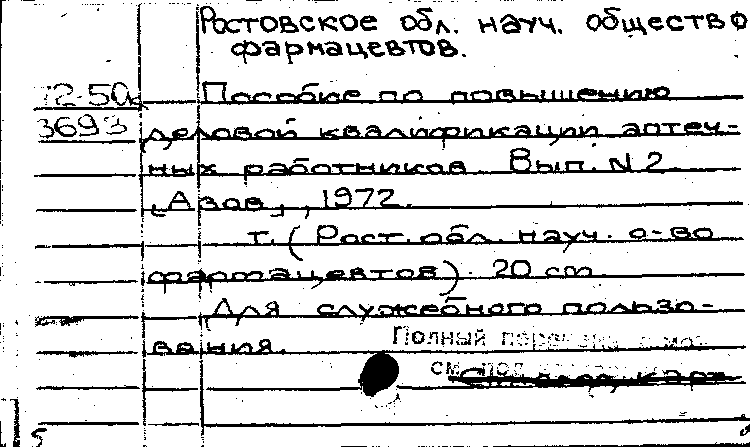 Ростовское обл. науч. общество
фармацевтов.
72-50к Пособие по повышению
3693 деловой квалификации аптеч-
ных работников Вып. N 2
[Азов], 1972.
т. (Рост. обл. науч. о-во
фармацевтов). 20 см.
Для служебного пользо-
вания.
Полный
см. под
5